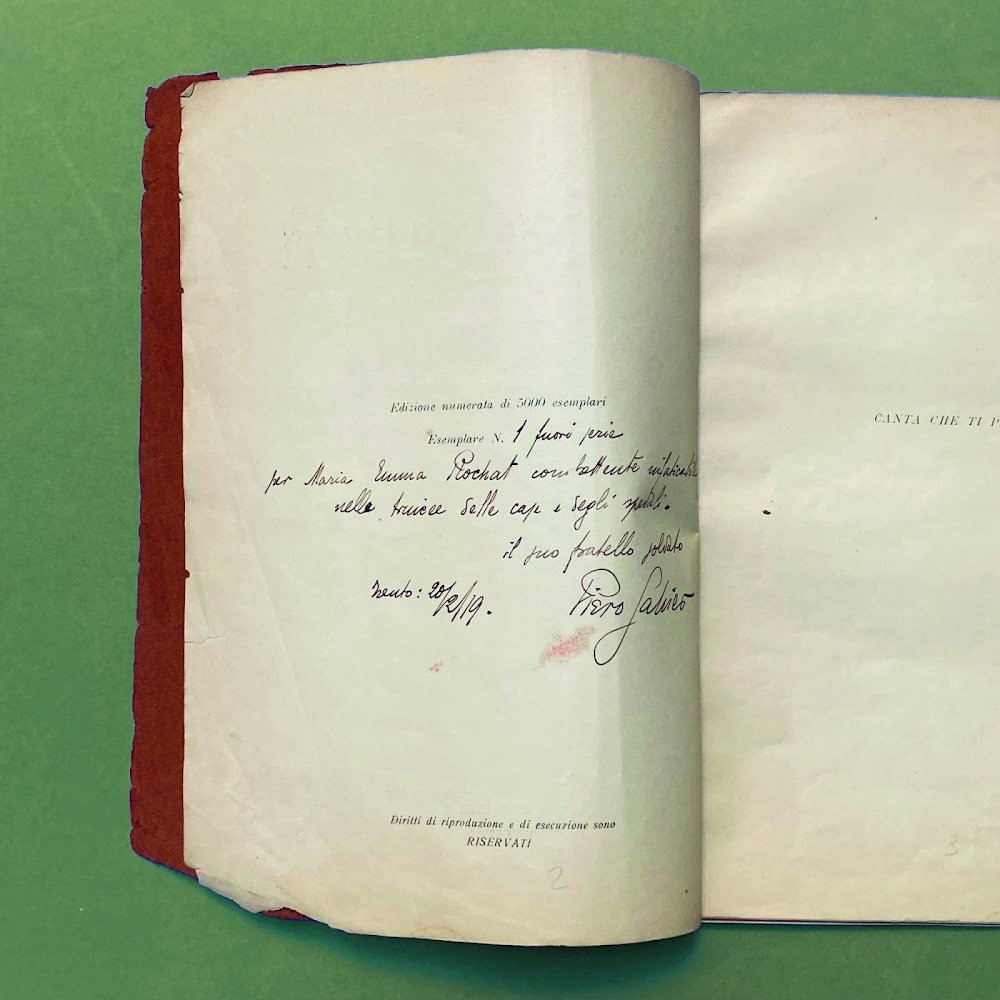 Edizione numerata di 5000 esemplari
Esemplare N. 1 fuori serie
per Maria Emma Rochat combattente
nelle trincee delle case e degli spedali.
il suo fratello soldato
Trento: 20/2/19.
Piero Jahier
Diritti di riproduzione e di esecuzione sono
RISERVATI
2
CANTA CHE TI P
3